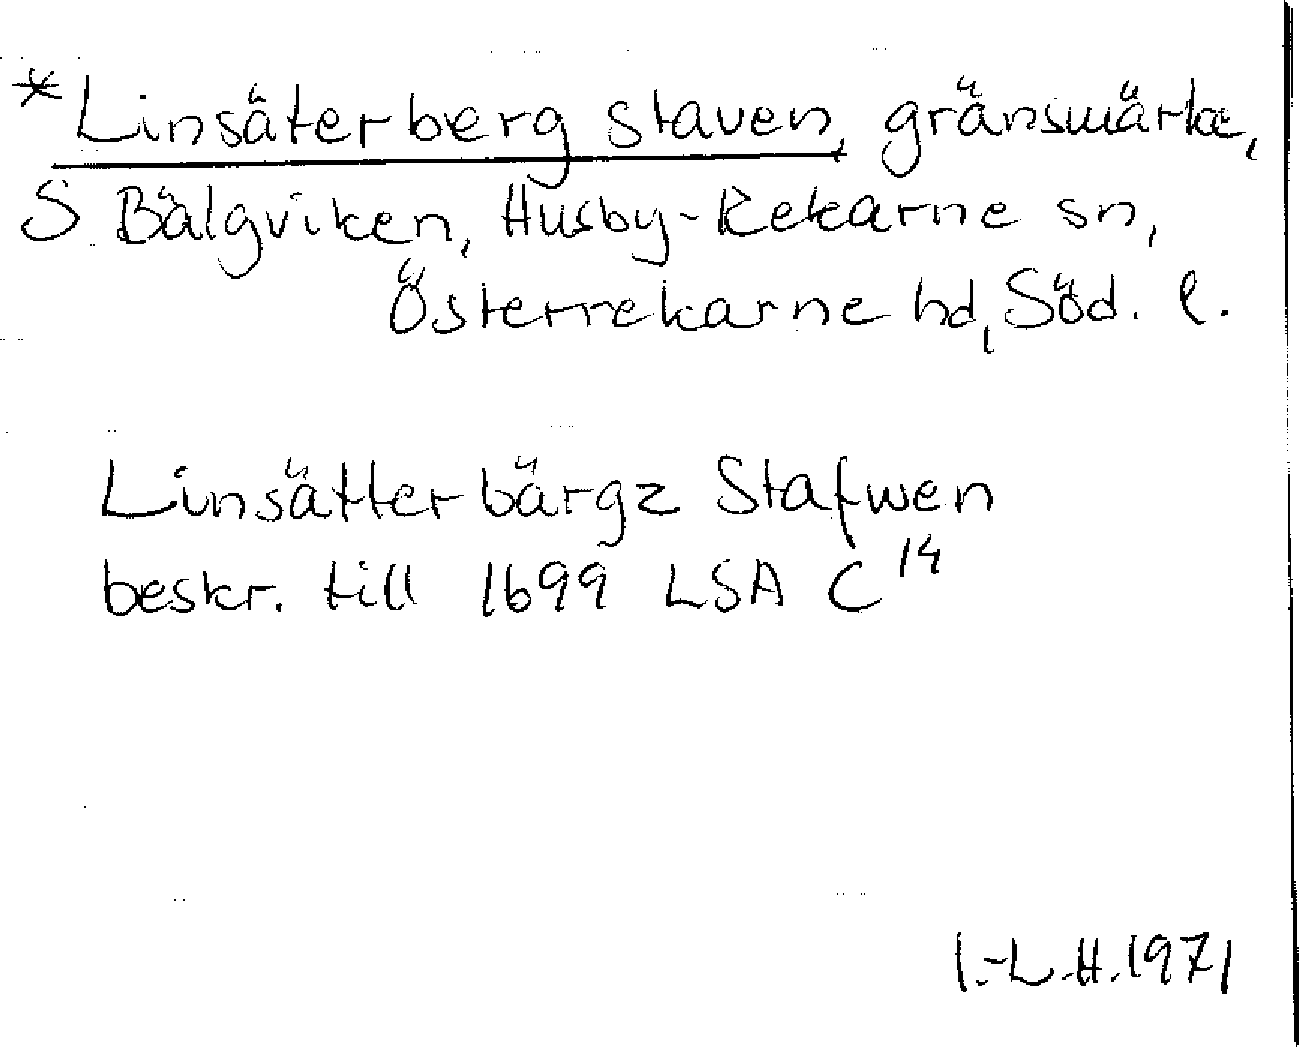 *Linsäterberg staven, gränsmärke,
S Bälgviken, Husby-Rekarne sn,
Österrekarne hd, Söd. l.
Linsätterbärgz Stafwen
beskr. till 1699 LSA C¹⁴
I.-L.H. 1971